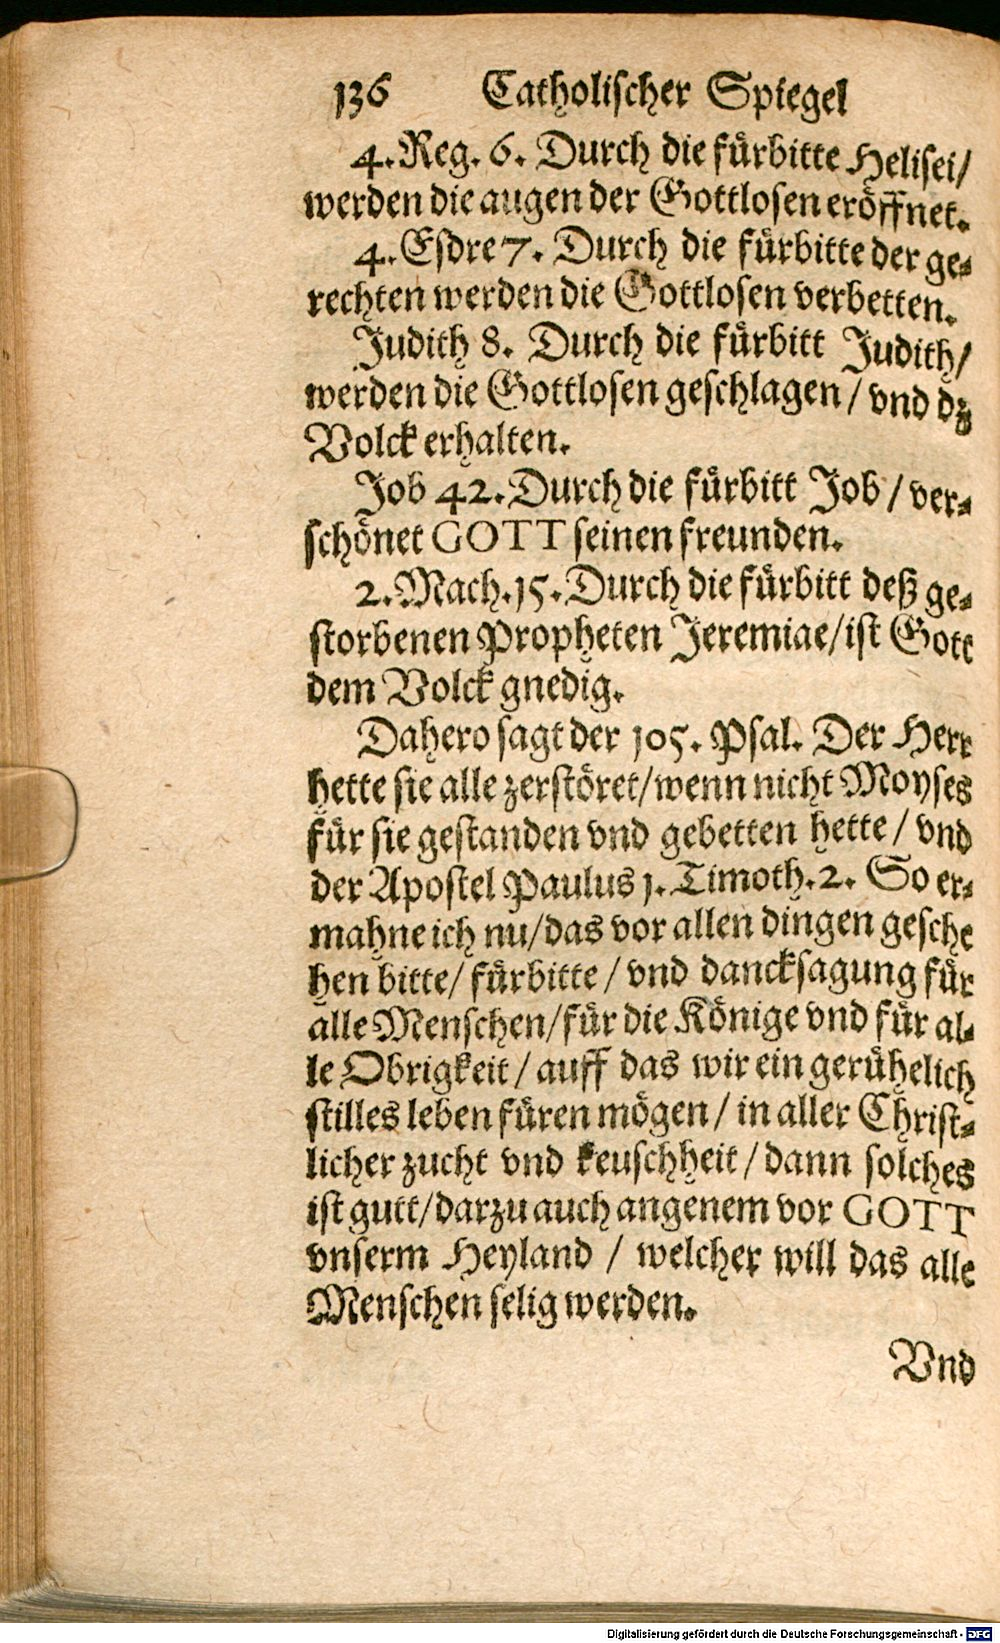 136 Catholischer Spiegel
4. Reg. 6. Durch die fürbitte Helisei/
werden die augen der Gottlosen eröffnet.
4. Esdre 7. Durch die fürbitte der ge-
rechten werden die Gottlosen verbetten.
Judith 8. Durch die fürbitt Judith/
werden die Gottlosen geschlagen / vnd dz
Volck erhalten.
Job 42. Durch die fürbitt Job / ver-
schönet GOTT seinen freunden.
2. Mach. 15. Durch die fürbitt deß ge-
storbenen Propheten Jeremiae/ist Gott
dem Volck gnedig.
Dahero sagt der 105. Psal. Der Herr
hette sie alle zerstöret/wenn nicht Moyses
für sie gestanden vnd gebetten hette / vnd
der Apostel Paulus 1. Timoth. 2. So er-
mahne ich nu/das vor allen dingen gesche
hen bitte/ fürbitte / vnd dancksagung für
alle Menschen/für die Könige vnd für al-
le Obrigkeit / auff das wir ein gerühelich
stilles leben füren mögen / in aller Christ-
licher zucht vnd keuschheit / dann solches
ist gutt/darzu auch angenem vor GOTT
vnserm Heyland / welcher will das alle
Menschen selig werden.
Vnd
Digitalisierung gefördert durch die Deutsche Forschungsgemeinschaft - DFG